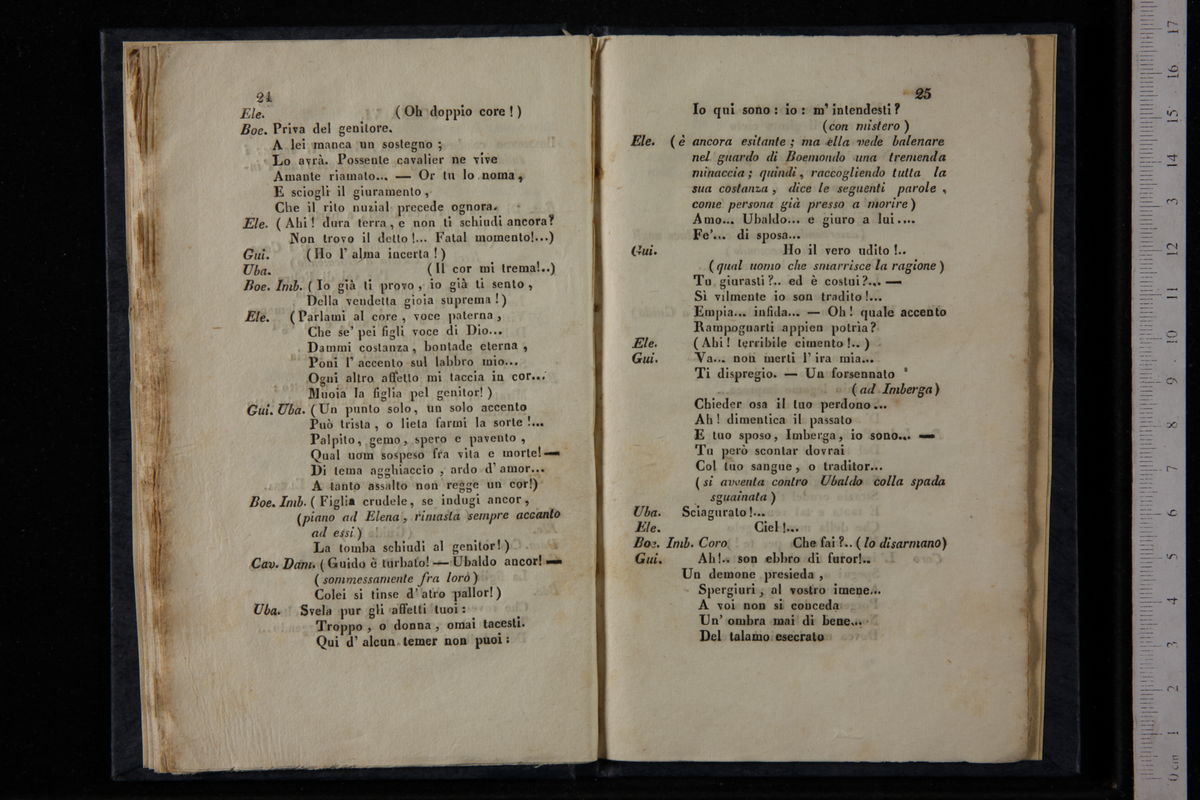 24
Ele. (Oh doppio core!)
Boe. Priva del genitore.
A lei manca un sostegno;
Lo avrà. Possente cavalier ne vive
Amante riamato... — Or tu lo noma,
E sciogli il giuramento,
Che il rito nuzial precede ognora.
Ele. (Ahi! dura terra, e non ti schiudi ancora?
Non trovo il detto!... Fatal momento!...)
Gui. (Ho l'alma incerta!)
Uba. (Il cor mi trema!..)
Boe. Imb. (Io già ti provo, io già ti sento,
Della vendetta gioia suprema!)
Ele. (Parlami al core, voce paterna,
Che se' pei figli voce di Dio...
Dammi costanza, bontade eterna,
Poni l'accento sul labbro mio...
Ogni altro affetto mi taccia in cor...
Muoia la figlia pel genitor!)
Gui. Uba. (Un punto solo, un solo accento
Può trista, o lieta farmi la sorte!...
Palpito, gemo, spero e pavento,
Qual uom sospeso fra vita e morte!—
Di tema agghiaccio, ardo d'amor...
A tanto assalto non regge un cor!)
Boe. Imb. (Figlia crudele, se indugi ancor,
(piano ad Elena, rimasta sempre accanto
ad essi)
La tomba schiudi al genitor!)
Cav. Dam. (Guido è turbato! — Ubaldo ancor! —
(sommessamente fra loro)
Colei si tinse d'atro pallor!)
Uba. Svela pur gli affetti tuoi:
Troppo, o donna, omai tacesti.
Qui d'alcun temer non puoi:
25
Io qui sono: io: m'intendesti?
(con mistero)
Ele. (è ancora esitante; ma ella vede balenare
nel guardo di Boemondo una tremenda
minaccia; quindi, raccogliendo tutta la
sua costanza, dice le seguenti parole,
come persona già presso a morire)
Amo... Ubaldo... e giuro a lui....
Fe'... di sposa...
Gui. Ho il vero udito!..
(qual uomo che smarrisce la ragione)
Tu giurasti?.. ed è costui?... —
Sì vilmente io son tradito!...
Empia... infida... — Oh! quale accento
Rampognarti appien potria?
Ele. (Ahi! terribile cimento!..)
Gui. Va... non merti l'ira mia...
Ti dispregio. — Un forsennato
(ad Imberga)
Chieder osa il tuo perdono...
Ah! dimentica il passato
E tuo sposo, Imberga, io sono... —
Tu però scontar dovrai
Col tuo sangue, o traditor...
(si avventa contro Ubaldo colla spada
sguainata)
Uba. Sciagurato!...
Ele. Ciel!...
Boe. Imb. Coro Che fai?.. (lo disarmano)
Gui. Ah!.. son ebbro di furor!..
Un demone presieda,
Spergiuri, al vostro imene...
A voi non si conceda
Un'ombra mai di bene...
Del talamo esecrato